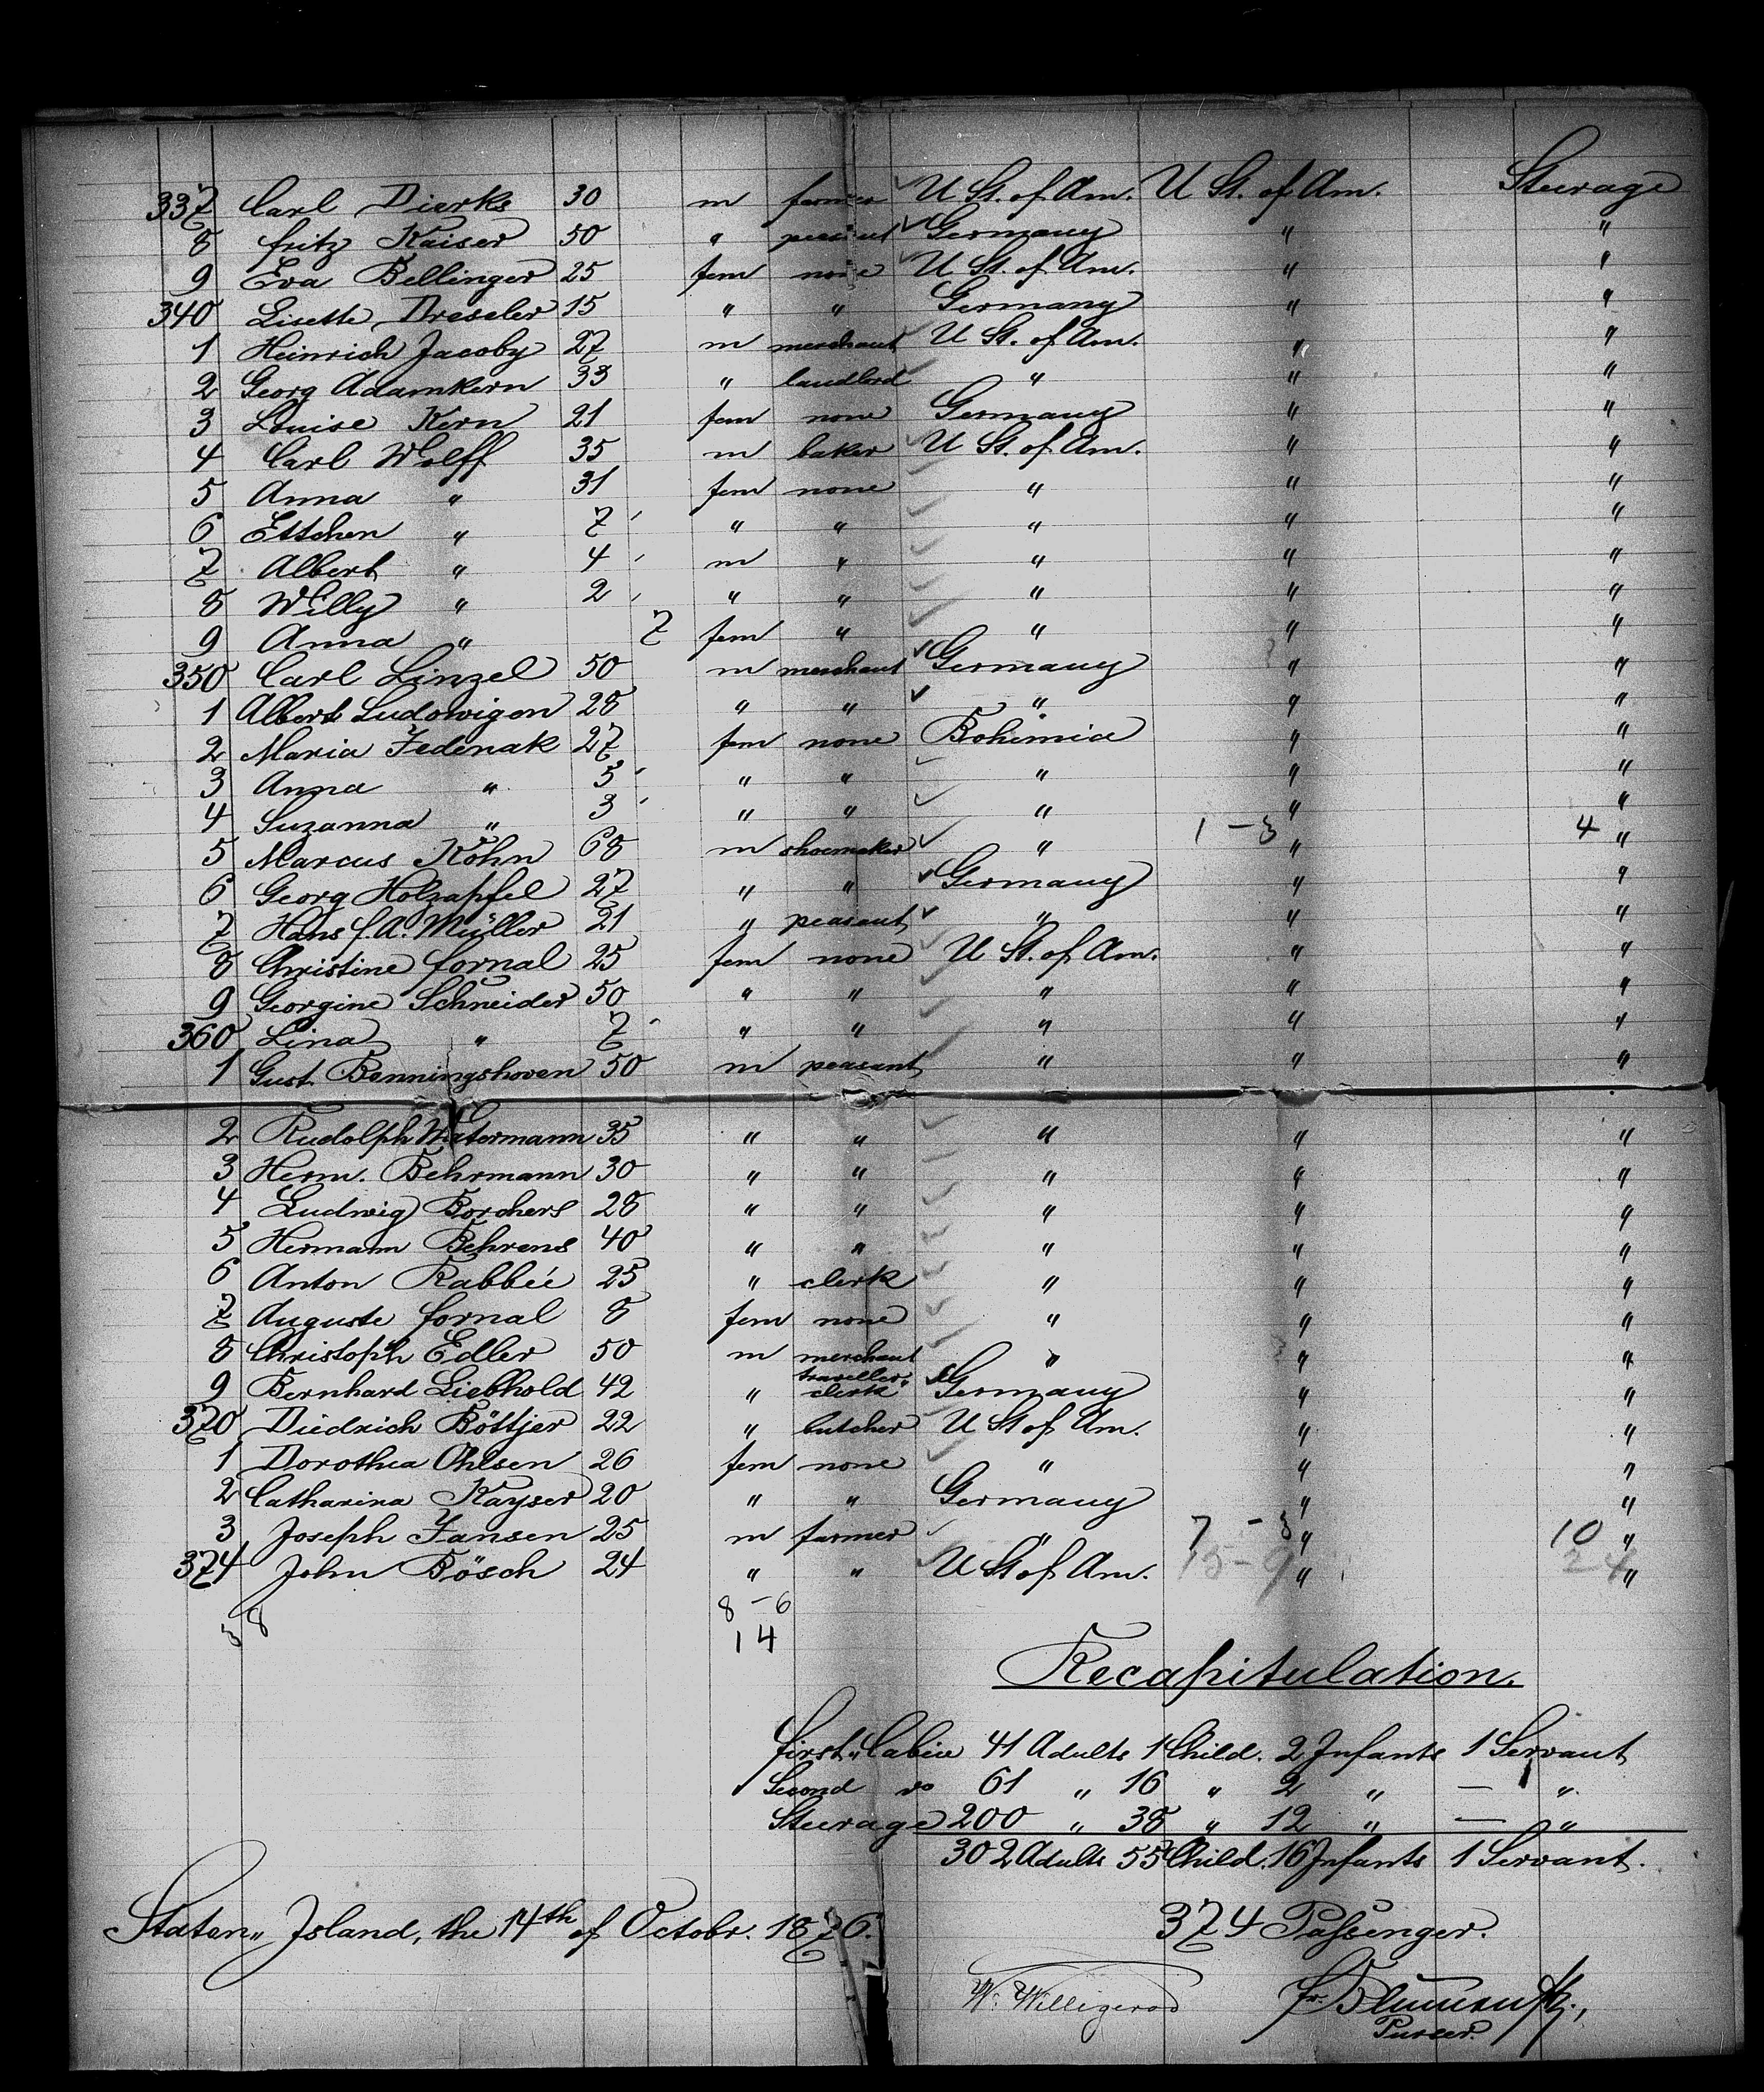 337 Carl Dierks 30 m farmer U St. of Am. U St. of Am. Steerage
8 Fritz Kaiser 50 " peasant Germany " "
9 Eva Bellinger 25 fem none U St. of Am. " "
340 Lisette Dreseler 15 " " Germany " "
1 Heinrich Jacoby 27 m merchant U St. of Am. " "
2 Georg Adamkern 33 " landlord " " "
3 Louise Kern 21 fem none Germany " "
4 Carl Wolff 35 m baker U St. of Am. " "
5 Anna " 31 fem none " " "
6 Ettchen " 7 " " " " "
7 Albert " 4 m " " " "
8 Willy " 2 " " " " "
9 Anna " 7 fem " " " "
350 Carl Linzel 50 m merchant Germany " "
1 Albert Ludowigen 28 " " " " "
2 Maria Jedenak 27 fem none Bohemia " "
3 Anna " 5 " " " " "
4 Suzanna " 3 " " " " "
5 Marcus Köhn 68 m shoemaker " 1 - 3 " 4 "
6 Georg Holzapfel 27 " " Germany " "
7 Hans f. A. Müller 21 " peasant " " "
8 Christine Fornal 25 fem none U St. of Am. " "
9 Georgine Schneider 50 " " " " "
360 Lina " 7 " " " " "
1 Gust. Benningshoven 50 m peasant " " "
2 Rudolph Watermann 35 " " " " "
3 Herm. Behrmann 30 " " " " "
4 Ludwig Borchers 28 " " " " "
5 Hermann Behrens 40 " " " " "
6 Anton Rabbeé 25 " clerk " " "
7 Auguste Fornal 8 fem none " " "
8 Christoph Edler 50 m merchant " " "
9 Bernhard Liebhold 42 " traveller. clerk Germany " "
370 Diedrich Böttjer 22 " butcher U St of Am. " "
1 Dorothea Ohlsen 26 fem none " " "
2 Catharina Kayser 20 " " Germany " "
3 Joseph Jansen 25 m farmer " 7 - 3 " 10 "
374 John Bösch 24 " " U St of Am. 15 - 9 " 24 "
38 8 - 6
14
Recapitulation.
First " Cabin 41 Adults 1 Child. 2 Infants 1 Servant
Second do 61 " 16 " 2 " — "
Steerage 200 " 38 " 12 " — "
302 Adults 55 Child. 16 Infants 1 Servant.
Staten " Island, the 14th of Octobr. 1876. 374 Passenger.
W. Willigerod
Purser.